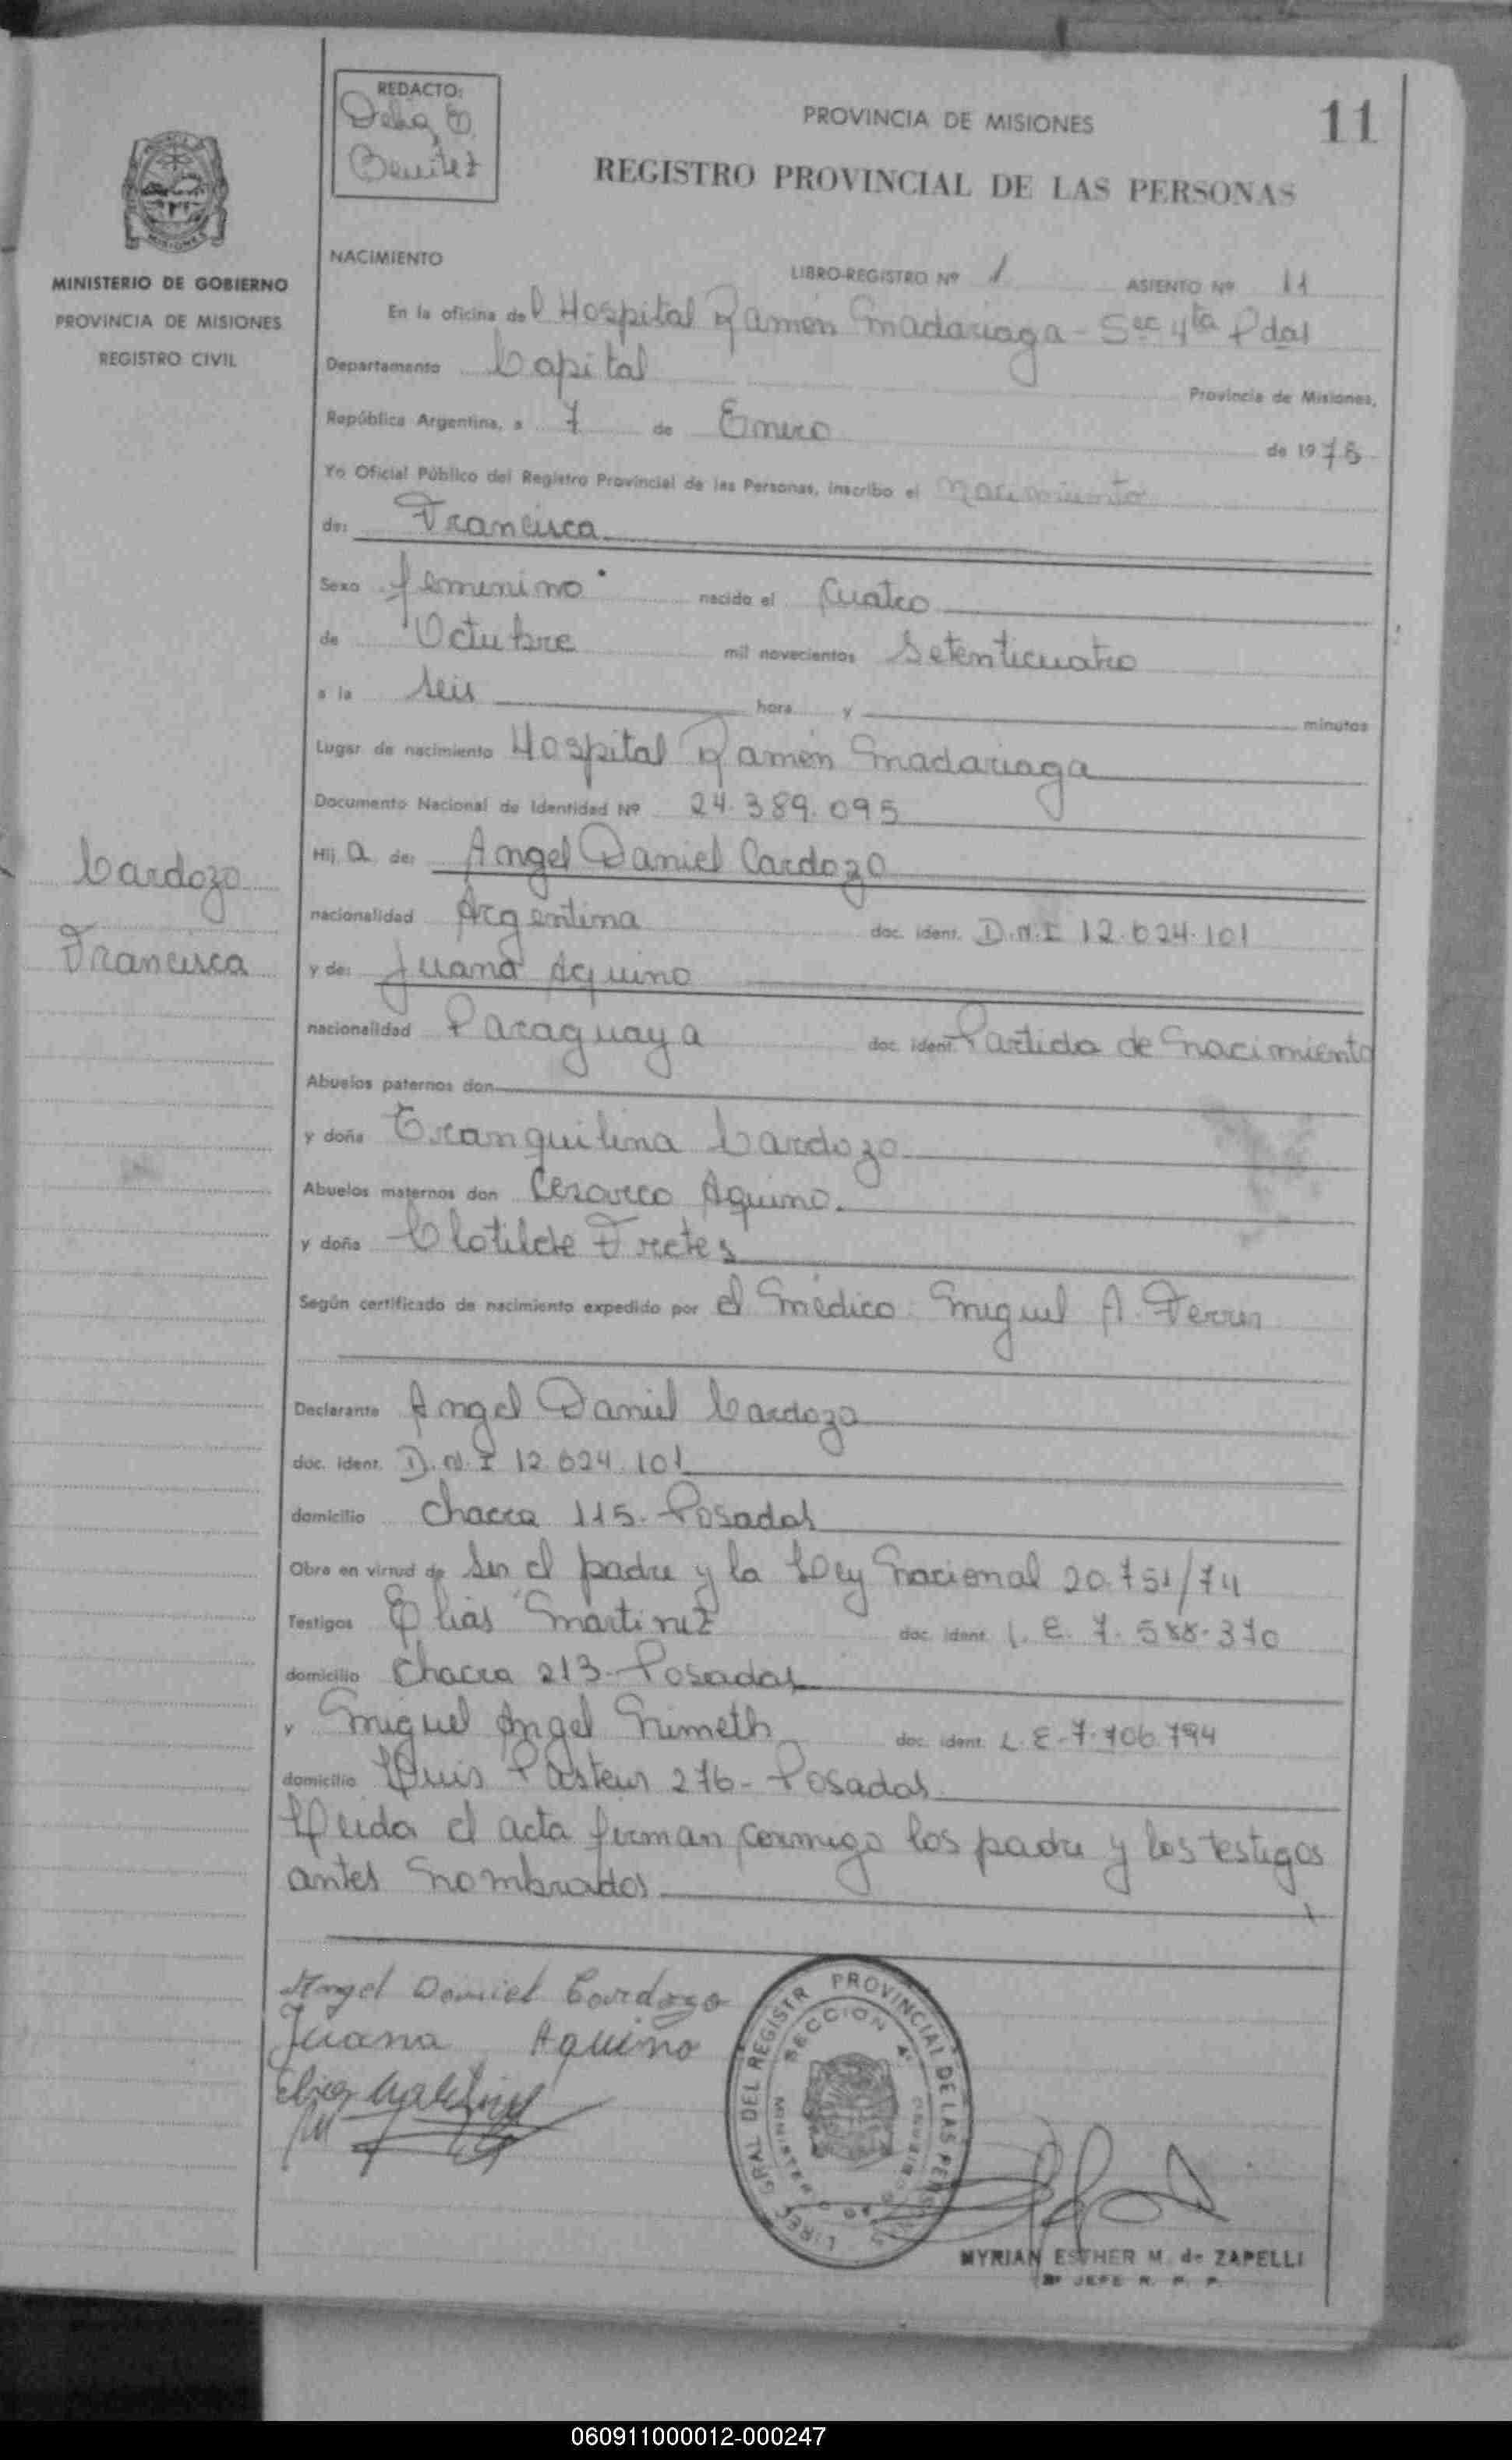 REDACTO:
Delia E.
Benitez
PROVINCIA DE MISIONES
11
REGISTRO PROVINCIAL DE LAS PERSONAS
MINISTERIO DE GOBIERNO
PROVINCIA DE MISIONES
REGISTRO CIVIL
NACIMIENTO
LIBRO-REGISTRO Nº 1 ASIENTO Nº 11
En la oficina del Hospital Ramón Madariaga - Sec 4ta Pdas
Departamento Capital Provincia de Misiones,
República Argentina, a 7 de Enero de 1975
Yo Oficial Público del Registro Provincial de las Personas, inscribo el Nacimiento
de: Francisca
Sexo femenino nacido el Cuatro
de Octubre mil novecientos Setenticuatro
a la seis hora y minutos
Lugar de nacimiento Hospital Ramón Madariaga
Documento Nacional de Identidad Nº 24.389.095
Hij a de: Angel Daniel Cardozo
nacionalidad Argentina doc. ident. D.N.I 12.624.101
y de: Juana Aquino
nacionalidad Paraguaya doc. ident. Partida de Nacimiento
Abuelos paternos don
y doña Tranquilina Cardozo
Abuelos maternos don Aquino.
y doña Clotilde Fretes
Según certificado de nacimiento expedido por el Médico Miguel A. Ferrer
Declarante Angel Daniel Cardozo
doc. ident. D.N.I 12.624.101
domicilio Chacra 115. Posadas
Obra en virtud de Ser el padre y la Ley Nacional 20.751/74
Testigos Elias Martinez doc. ident. L.E. 7.588.370
domicilio Chacra 213- Posadas
y Miguel Angel Nimeth doc. ident. L.E-7.706.794
domicilio Luis Pasteur 276- Posadas
Leida el acta firman conmigo los padre y los testigos
antes Nombrados
Cardozo
Francisca
Angel Daniel Cardozo
Juana Aquino
Elias Martinez
DIREC GRAL DEL REGISTR PROVINCIAL DE LAS PERSONAS
SECCION 4ª
MYRIAN ESTHER M. de ZAPELLI
JEFE R. P. P.
060911000012-000247